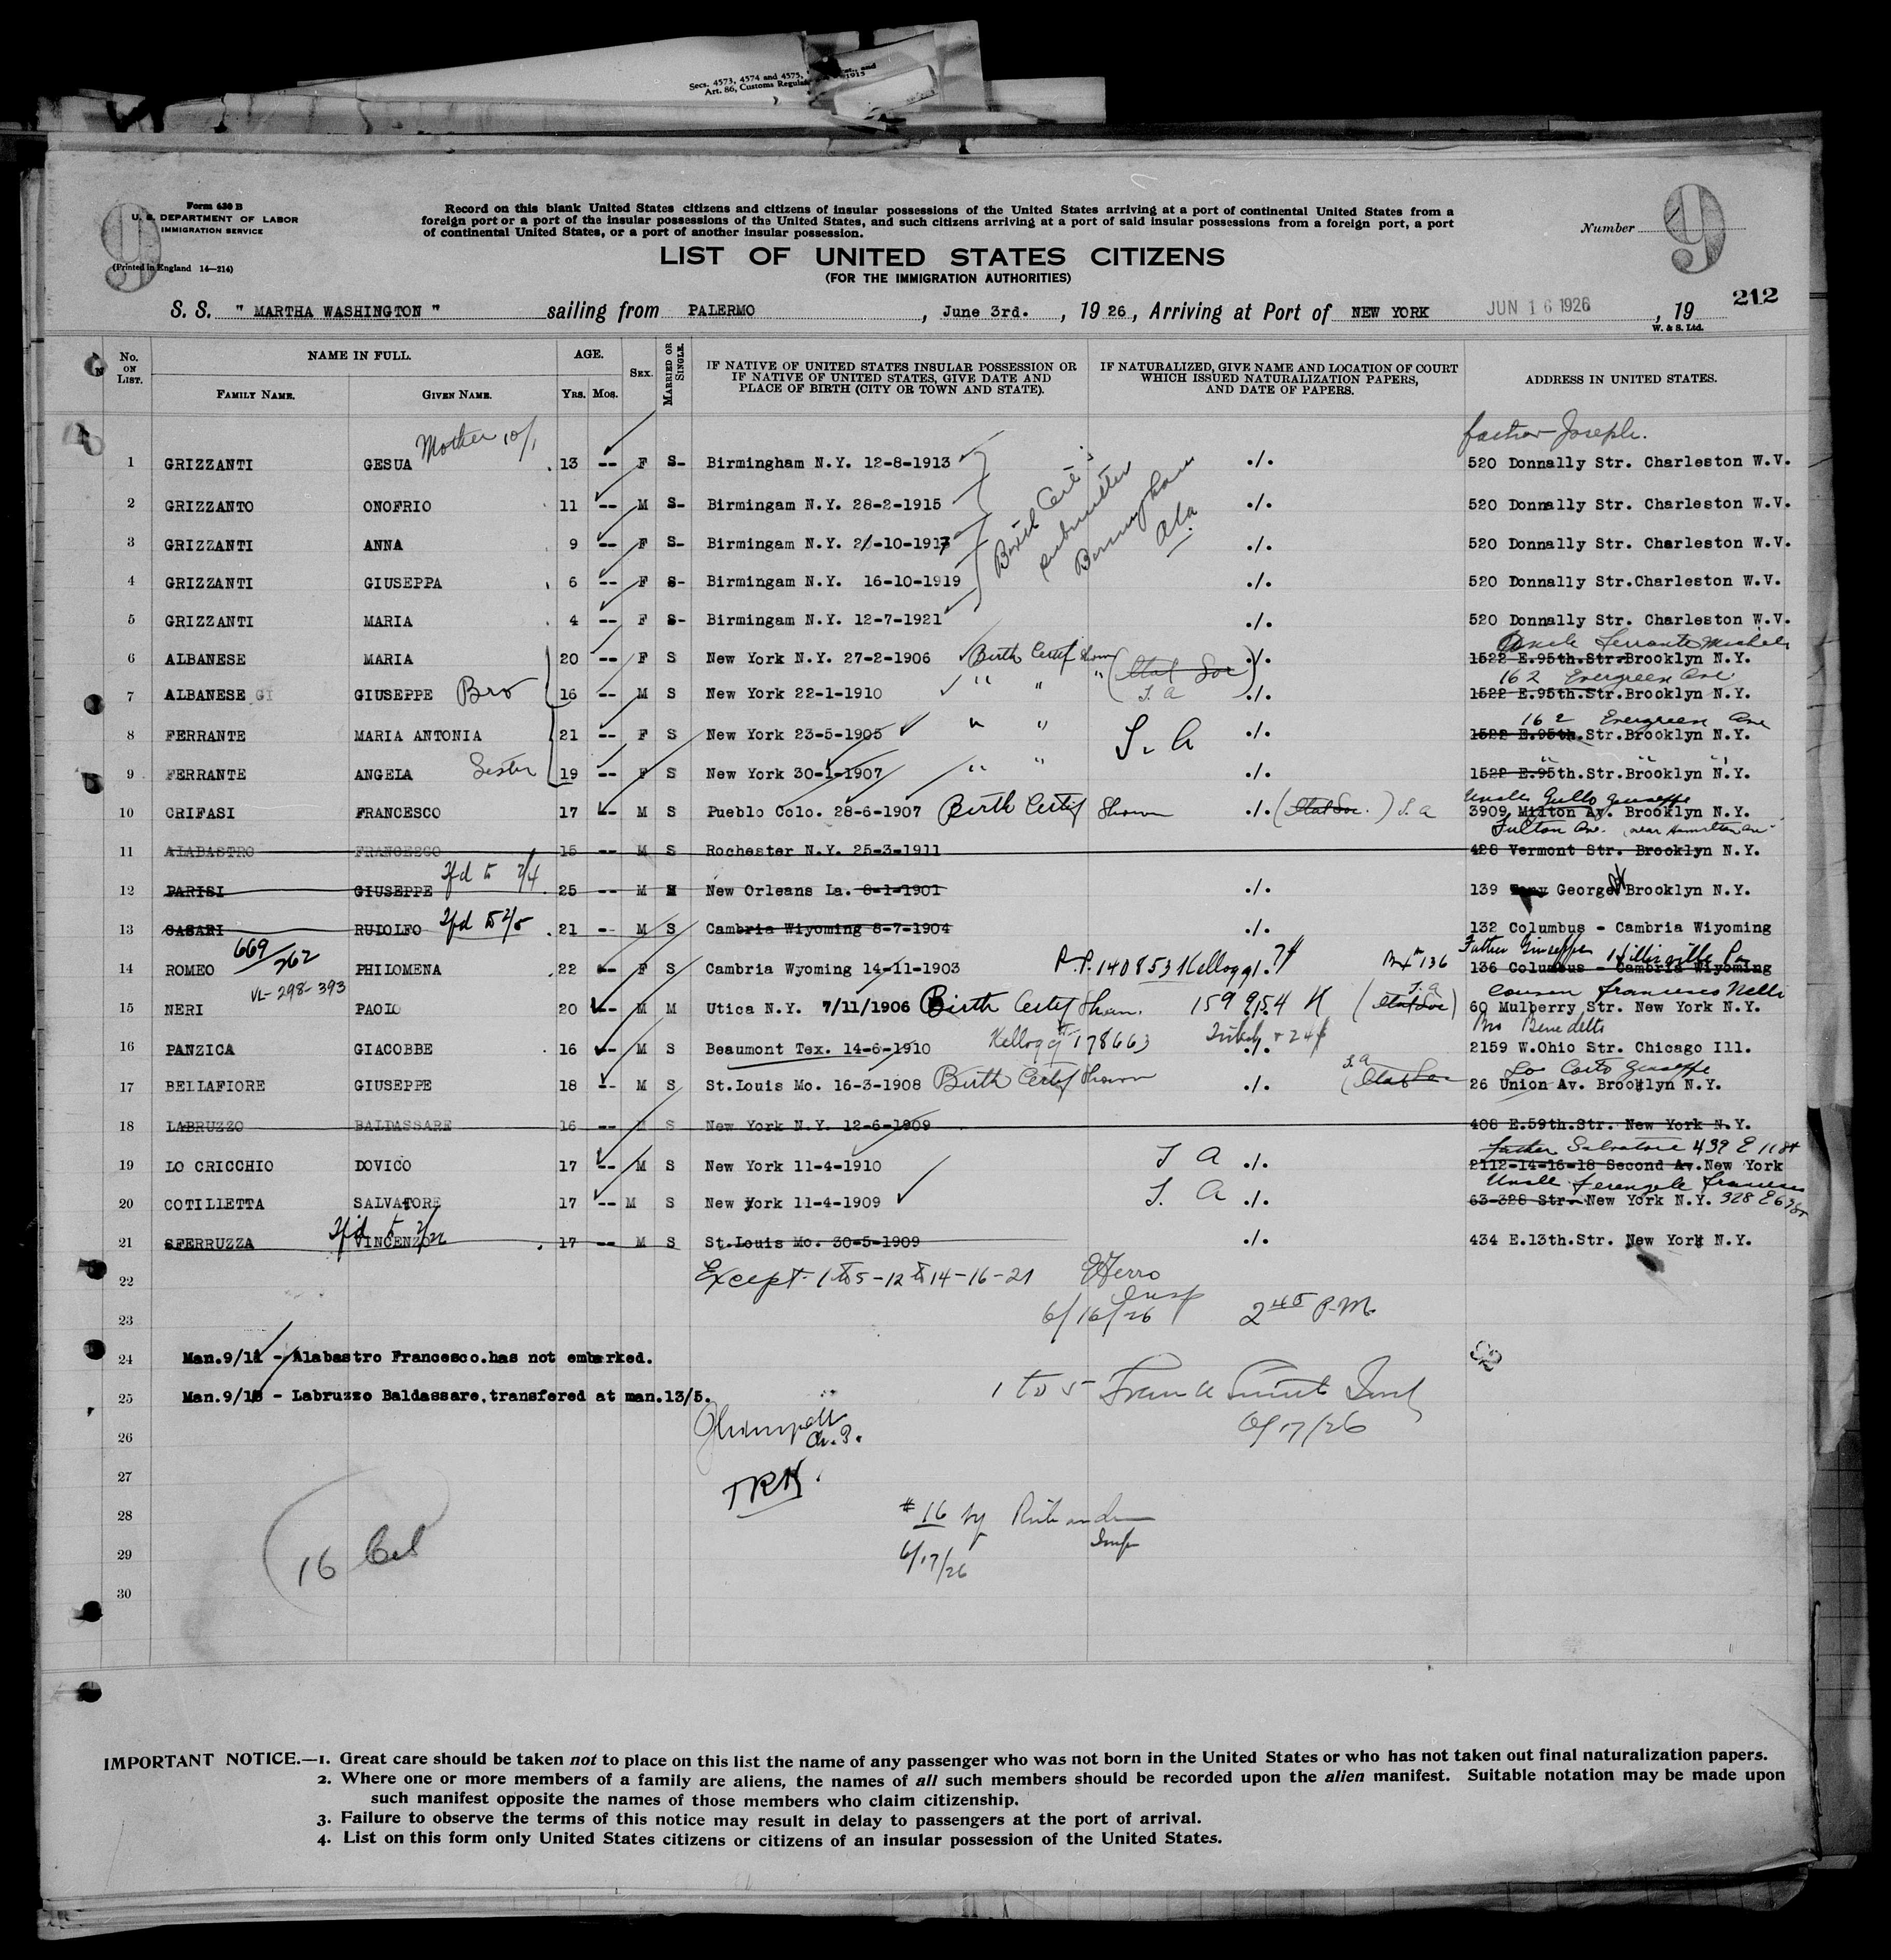 Secs. 4573, 4574 and 4575,
Art. 86, Customs Regula
9
Form 630 B
U. S. DEPARTMENT OF LABOR
IMMIGRATION SERVICE
(Printed in England 14—214)
Record on this blank United States citizens and citizens of insular possessions of the United States arriving at a port of continental United States from a
foreign port or a port of the insular possessions of the United States, and such citizens arriving at a port of said insular possessions from a foreign port, a port
of continental United States, or a port of another insular possession.
Number
9
LIST OF UNITED STATES CITIZENS
(FOR THE IMMIGRATION AUTHORITIES)
212
S. S. " MARTHA WASHINGTON " sailing from PALERMO, June 3rd., 1926, Arriving at Port of NEW YORK JUN 16 1926, 19
W. & S. Ltd.
No. ON LIST. NAME IN FULL. FAMILY NAME. GIVEN NAME. AGE. YRS. MOS. SEX. MARRIED OR SINGLE. IF NATIVE OF UNITED STATES INSULAR POSSESSION OR IF NATIVE OF UNITED STATES, GIVE DATE AND PLACE OF BIRTH (CITY OR TOWN AND STATE). IF NATURALIZED, GIVE NAME AND LOCATION OF COURT WHICH ISSUED NATURALIZATION PAPERS, AND DATE OF PAPERS. ADDRESS IN UNITED STATES.
Mother 10/1 father Joseph.
1 GRIZZANTI GESUA 13 -- F S- Birmingham N.Y. 12-8-1913 ./. 520 Donnally Str. Charleston W.V.
2 GRIZZANTO ONOFRIO 11 -- M S- Birmingam N.Y. 28-2-1915 ./. 520 Donnally Str. Charleston W.V.
3 GRIZZANTI ANNA 9 -- F S- Birmingam N.Y. -10-1917 ./. 520 Donnally Str. Charleston W.V.
4 GRIZZANTI GIUSEPPA 6 -- F S- Birmingam N.Y. 16-10-1919 ./. 520 Donnally Str.Charleston W.V.
5 GRIZZANTI MARIA 4 -- F S- Birmingam N.Y. 12-7-1921 ./. 520 Donnally Str. Charleston W.V.
Birth Cert's submitted Birmingham Ala
Uncle Ferrante Michele
6 ALBANESE MARIA 20 -- F S New York N.Y. 27-2-1906 Birth Certif shown ./. 1522 E.95th.Str.Brooklyn N.Y.
162 Evergreen Ave.
7 ALBANESE GIUSEPPE Bro 16 -- M S New York 22-1-1910 " " " S. A ./. 1522 E.95th.Str.Brooklyn N.Y.
162 Evergreen Ave
8 FERRANTE MARIA ANTONIA 21 -- F S New York 23-5-1905 " " S. A ./. 1522 E.95th.Str.Brooklyn N.Y.
9 FERRANTE ANGELA Sister 19 -- F S New York 30-1-1907 " " ./. 1522 E.95th.Str.Brooklyn N.Y.
Uncle Gullo Giuseppe
10 CRIFASI FRANCESCO 17 -- M S Pueblo Colo. 28-6-1907 Birth Certif Shown ./. S. A 3909 Milton Av. Brooklyn N.Y.
Fulton Ave. near Hamilton Av
11 ALABASTRO FRANCESCO 15 -- M S Rochester N.Y. 25-3-1911 428 Vermont Str. Brooklyn N.Y.
12 PARISI GIUSEPPE 25 -- M M New Orleans La. 8-1-1901 ./. 139 George Brooklyn N.Y.
13 CASARI RUDOLFO 21 -- M S Cambria Wiyoming 8-7-1904 ./. 132 Columbus - Cambria Wiyoming
669/262 Father Giuseppe
14 ROMEO PHILOMENA 22 -- F S Cambria Wyoming 14-11-1903 P.P. 140853 Kellogg ./. Box 136 136 Columbus - Cambria Wiyoming
VL-298-393 Cousin Francesco Nelli
15 NERI PAOLO 20 -- M M Utica N.Y. 7/11/1906 Birth Certif Shown. 159954 60 Mulberry Str. New York N.Y.
Bro Benedetto
16 PANZICA GIACOBBE 16 -- M S Beaumont Tex. 14-6-1910 Kellogg 178663 ./. 2159 W.Ohio Str. Chicago Ill.
Lo Coste Giuseppe
17 BELLAFIORE GIUSEPPE 18 -- M S St.Louis Mo. 16-3-1908 Birth Certif Shown ./. S. A 26 Union Av. Brooklyn N.Y.
18 LABRUZZO BALDASSARE 16 -- M S New York N.Y. 12-6-1909 408 E.59th.Str. New York N.Y.
Father Salvatore 439 E 11 St
19 LO CRICCHIO DOVICO 17 -- M S New York 11-4-1910 S A ./. 2112-14-16-18 Second Av.New York
20 COTILLETTA SALVATORE 17 -- M S New york 11-4-1909 S. A ./. 63-328 Str. New York N.Y. 328 E 63 St
21 SFERRUZZA VINCENZO 17 -- M S St.Louis Mo. 30-5-1909 ./. 434 E.13th.Str. New York N.Y.
22 Except 1 to 5-12 to 14-16-21
Insp
23 6/16/26 2 45 P.M.
24 Man.9/11 - Alabastro Francesco.has not embarked.
25 Man.9/18 - Labruzzo Baldassare,transfered at man.13/5.
1 to 5 Insp
6/17/26
26
27
TRK.
28 #16 by Insp
29 6/17/26
16
30
IMPORTANT NOTICE.—1. Great care should be taken not to place on this list the name of any passenger who was not born in the United States or who has not taken out final naturalization papers.
2. Where one or more members of a family are aliens, the names of all such members should be recorded upon the alien manifest. Suitable notation may be made upon
such manifest opposite the names of those members who claim citizenship.
3. Failure to observe the terms of this notice may result in delay to passengers at the port of arrival.
4. List on this form only United States citizens or citizens of an insular possession of the United States.